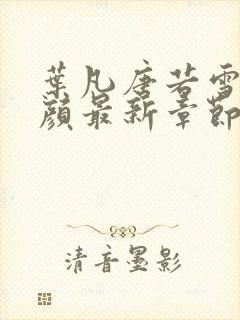 葉凡唐若雪
顏最新章節
清音墨影